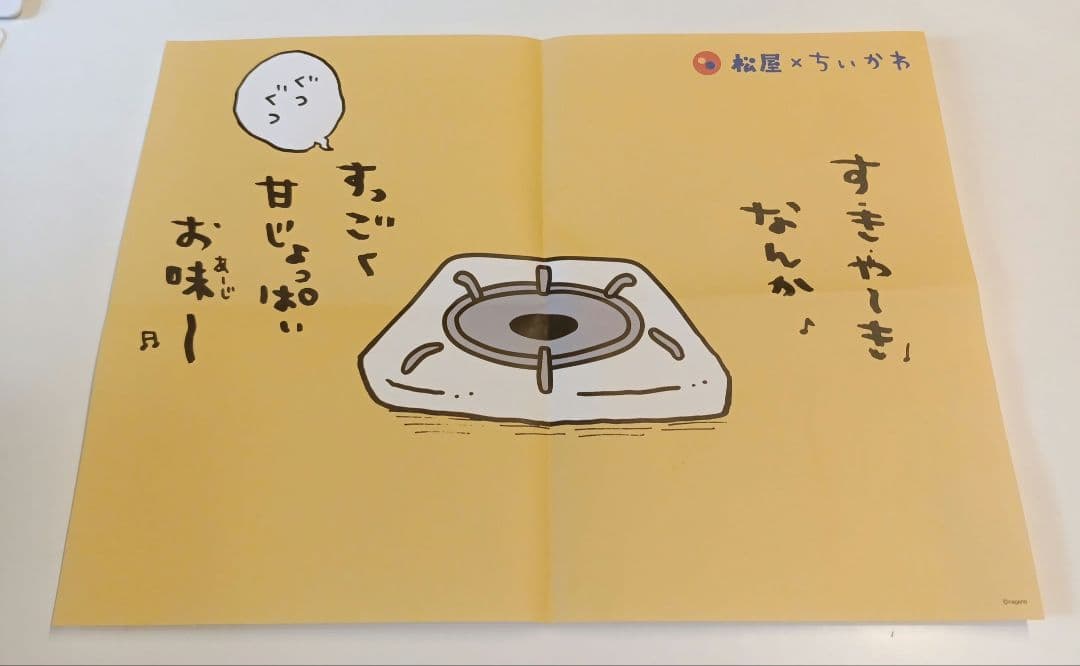 松屋×ちいかわ
す・き・や〜き♩
なんか♪
すっごく
甘じょっぱい
お味ー♬
あーじ
ぐつ
ぐつ
©nagano